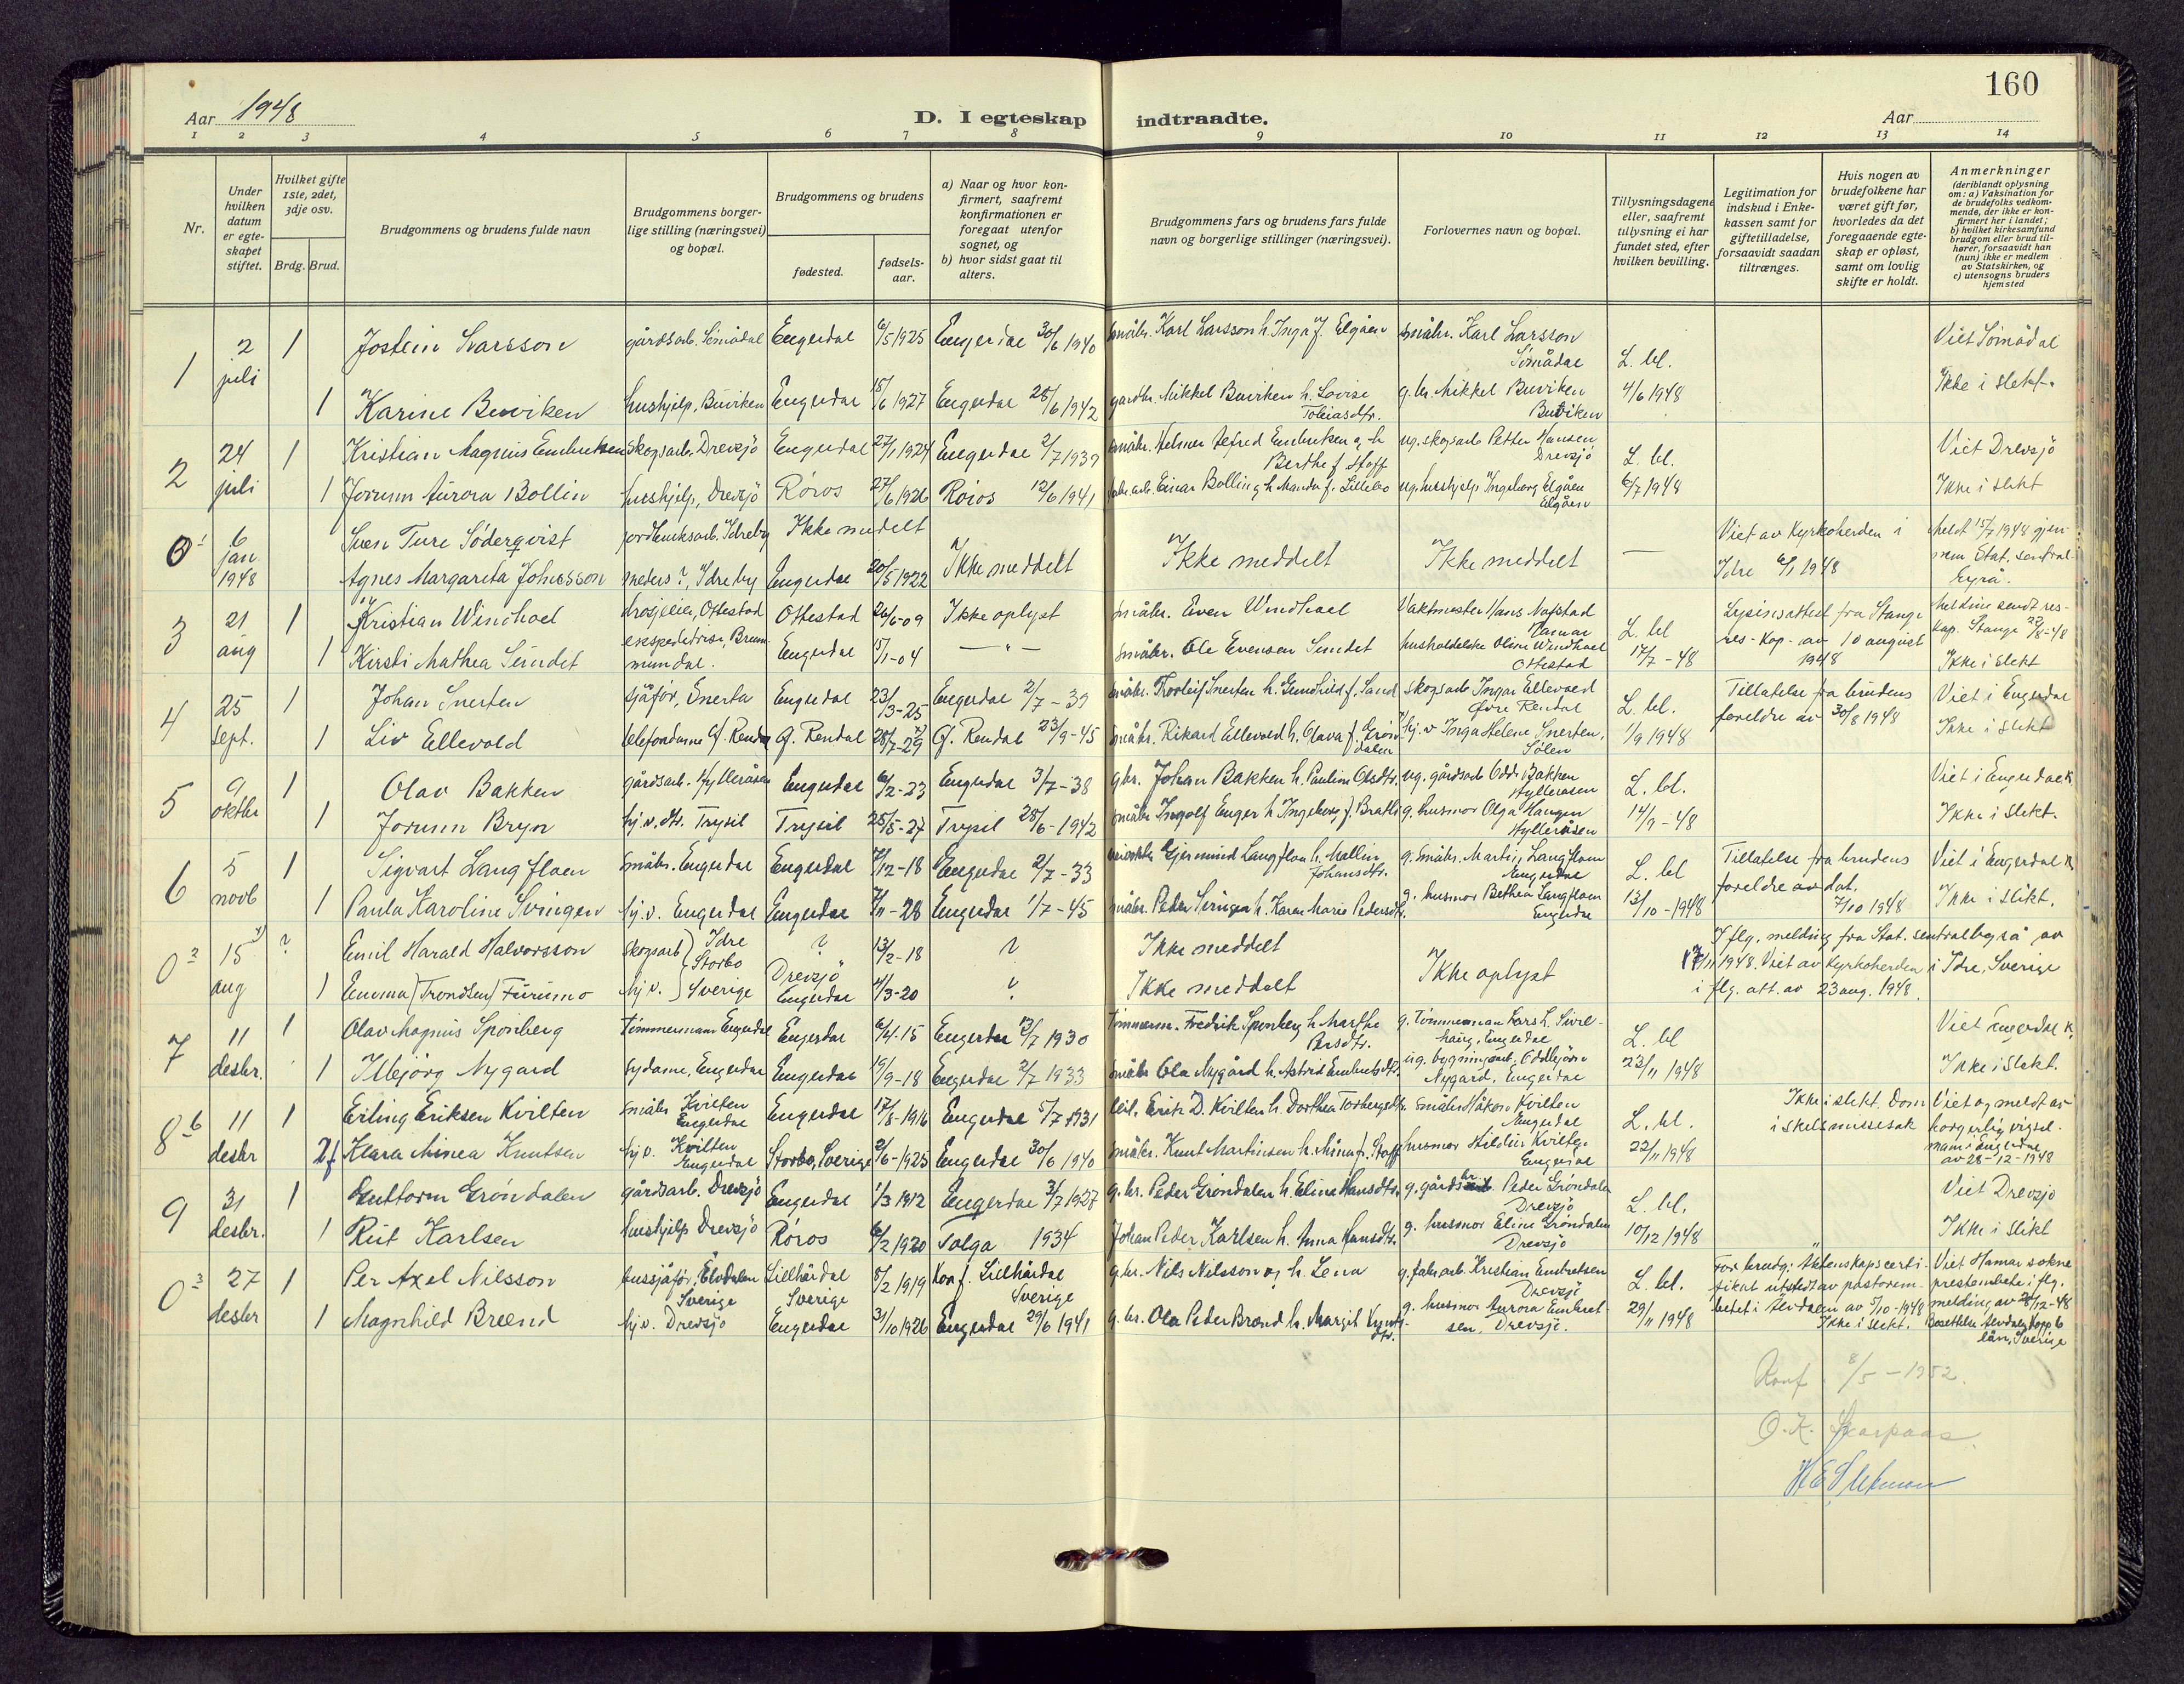 160
Aar 1948
D. I egteskap indtraadte.
Aar
1 2 3 4 5 6 7 8 9 10 11 12 13 14
Nr.
Under hvilken datum er egteskapet stiftet.
Hvilket gifte 1ste, 2det, 3dje osv.
Brdg. Brud.
Brudgommens og brudens fulde navn
Brudgommens borgerlige stilling (næringsvei) og bopæl.
Brudgommens og brudens
fødested.
fødselsaar.
a) Naar og hvor konfirmert, saafremt konfirmationen er foregaat utenfor sognet, og
b) hvor sidst gaat til alters.
Brudgommens fars og brudens fars fulde navn og borgerlige stillinger (næringsvei).
Forlovernes navn og bopæl.
Tillysningsdagene eller, saafremt tillysning ei har fundet sted, efter hvilken bevilling.
Legitimation for indskud i Enkekassen samt for giftetilladelse, forsaavidt saadan tiltrænges.
Hvis nogen av brudefolkene har været gift før, hvorledes da det foregaaende egteskap er opløst, samt om lovlig skifte er holdt.
Anmerkninger (deriblandt oplysning om: a) Vaksination for de brudefolks vedkommende, der ikke er konfirmert her i landet; b) hvilket kirkesamfund brudgom eller brud tilhører, forsaavidt han (hun) ikke er medlem av Statskirken, og c) utensogns bruders hjemsted
1 2 juli 1 Jostein Larsson gårdsarb. Sömådal Engerdal 6/5 1925 Engerdal 30/6 1940 småbr. Karl Larsson h. Inga f. Elgåen småbr. Karl Larsson Sömådal L. bl. 4/6 1948 Viet Sömådal
1 Karine Buviken hushjelp, Buviken Engerdal 15/6 1927 Engerdal 28/6 1942 gardbr. Mikkel Buviken h. Lovise Tobiasdtr. g. br. Mikkel Buviken Buviken Ikke i slekt.
2 24 juli 1 Kristian Magnus Embretsen skogsarb. Drevsjö Engerdal 27/11 1924 Engerdal 2/7 1939 småbr. Helmer Alfred Embretsen og h Berthe f. Hoff ug. skogsarb Petter Hansen Drevsjö L. bl. 6/7 1948 Viet Drevsjö
1 Jorunn Aurora Bollin hushjelp, Drevsjö Röros 27/6 1926 Röros 12/6 1941 fabr.arb. Einar Bolling h Manda f. Lillebo ug. hushjelp Ingeborg Elgåen Elgåen Ikke i slekt
0¹ 6 jan 1948 Sven Ture Söderqvist jordbruksarb. Idreby Ikke meddelt Viet av Kyrkoherden i Idre 6/1 1948 Meldt 15/7 1948 gjennem Stat. sentralbyrå.
Agnes Margareta Johnsson Idreby Engerdal 20/5 1922 Ikke meddelt Ikke meddelt Ikke meddelt —
3 21 aug 1 Kristian Windhoel drosjeeier, Ottestad Ottestad 26/6-09 Ikke oplyst småbr. Even Windhoel Vaktmester Hans Nafstad Hamar L. bl 17/7-48 Lysinsattest fra Stange res-kap. av 10 august 1948 Melding sendt res-kap. Stange 23/8-48
1 Kirsti Mathea Sundet ekspeditrise, Brummundal. Engerdal 15/1-04 — " — småbr. Ole Evensen Sundet husholderske Oline Windhoel Ottestad Ikke i slekt
4 25 sept. 1 Johan Snerten sjåför, Snerta Engerdal 23/3-25 Engerdal 2/7-39 småbr. Torleif Snerten h. Gunhild f. Sand skogsarb Ingar Ellevold Övre Rendal L. bl. 1/9 1948 Tillatelse fra brudens foreldre av 30/8 1948 Viet i Engerdal
1 Liv Ellevold telefondame Ö. Rendal Ö. Rendal 28/7-29 Ö. Rendal 23/9-45 småbr. Rikard Ellevold h. Olava f. Gröndalen hj. v Inga Helene Snerten, Sölen Ikke i slekt
5 9 oktbr 1 Olav Bakken gårdsarb. Hylleråsen Engerdal 6/2-23 Engerdal 3/7-38 gbr. Johan Bakken h. Pauline Olsdtr. ug. gårdsarb Odd Bakken Hylleråsen L. bl. 14/9-48 Viet i Engerdal k.
1 Jorunn Bryn hj. v. dtr. Trysil Trysil 25/5-27 Trysil 28/6-1942 småbr Ingolf Enger h Ingeborg f. Bratli g. husmor Olga Haugen Hylleråsen Ikke i slekt.
6 5 novb 1 Sigvart Langfloen småbr. Engerdal Engerdal /12-18 Engerdal 2/7-33 Gjermund Langfloen h. Mallin Johansdtr. g. småbr. Martin Langfloen Engerdal L. bl 13/10-1948 Tillatelse fra brudens foreldre av dat. 7/10 1948 Viet i Engerdal k
1 Paula Karoline Svingen hj.v. Engerdal Engerdal 7/11-28 Engerdal 1/7-45 småbr. Peder Svingen h. Karen Marie Pedersdtr. g. husmor Bethea Langfloen Engerdal Ikke i slekt.
0² 15 aug ? Emil Harald Halvorsson skogsarb Idre Storbo ? 13/2-18 ? Ikke meddelt Ikke oplyst I flg. melding fra Stat. sentralbyrå av 17/11 1948. Viet av Kyrkoherden i Idre, Sverige i flg. att. av 23 aug. 1948.
1 Emma (Trondsen) Furumo hj.v. Sverige Drevsjö Engerdal 4/3-20 ? Ikke meddelt
7 11 desbr. 1 Olav Magnus Sponberg Tömmermann Engerdal Engerdal 6/4-15 Engerdal 13/7 1930 tömmerm. Fredrik Sponberg h. Marthe Persdtr. g. Tömmerman Lars L. Sörlhaug, Engerdal L. bl 23/11 1948 Viet Engerdal k.
1 Ilbjörg Nygard sydame, Engerdal Engerdal 19/9-18 Engerdal 2/7 1933 småbr Ola Nygård h. Astrid Embretsdtr. ug. bygningsarb. Oddbjörn Nygard, Engerdal Ikke i slekt.
8 b 11 desbr 1 Erling Eriksen Kvilten småbr Kvilten Engerdal Engerdal 17/8-1916 Engerdal 5/7 1931 Erik D. Kvilten h. Dorthea Torbergsdtr. småbr Håkon Kvilten Engerdal L. bl. 22/11 1948 Ikke i slekt. Dom i skilsmissesak Viet og meldt av borgerlig vigselmann i Engerdal av 28-12-1948
2f Klara Minea Knutsen hj v. Kvilten Engerdal Storbo, Sverige 2/6-1925 Engerdal 30/6 1940 småbr. Knut Martinsen h. Mina f. Hoff husmor Hildur Kvilten Engerdal
9 31 desbr. 1 Guttorm Gröndalen gårdsarb. Drevsjö Engerdal 1/3 1912 Engerdal 3/7 1927 g.br. Peder Gröndalen h. Eline Hansdtr. g. gårdbr. Peder Gröndalen Drevsjö L. bl. 10/12 1948 Viet Drevsjö
1 Rut Karlsen hushjelp Drevsjö Röros 6/2 1920 Tolga 1934 Johan Peder Karlsen h. Anna Hansdtr. g. husmor Eline Gröndalen Drevsjö Ikke i slekt
0³ 27 desbr 1 Per Axel Nilsson bussjåför, Elvdalen Sverige Lillhärdal Sverige 8/2 1919 Konf. Lillhärdal Sverige g.br. Nils Nilsson og h. Lena g. fabr.arb. Kristian Embretsen Drevsjö L. bl. 29/11 1948 For brudg: Äktenskapscertifikat utstedt av pastorembetet i Älvdalen av 5/10-1948 Ikke i slekt. Viet Hamar sokneprestembete i flg. melding av 28/12-48
1 Magnhild Breend hj.v. Drevsjö Engerdal 31/10 1926 Engerdal 29/6 1941 g.br. Ola Peder Brænd h. Margit Knutsdtr. g. husmor Aurora Embretsen, Drevsjö. Bosettelse Älvdalen, Kopp.b. län, Sverige
Konf. 8/5-1952.
O. K. Skarpaas.